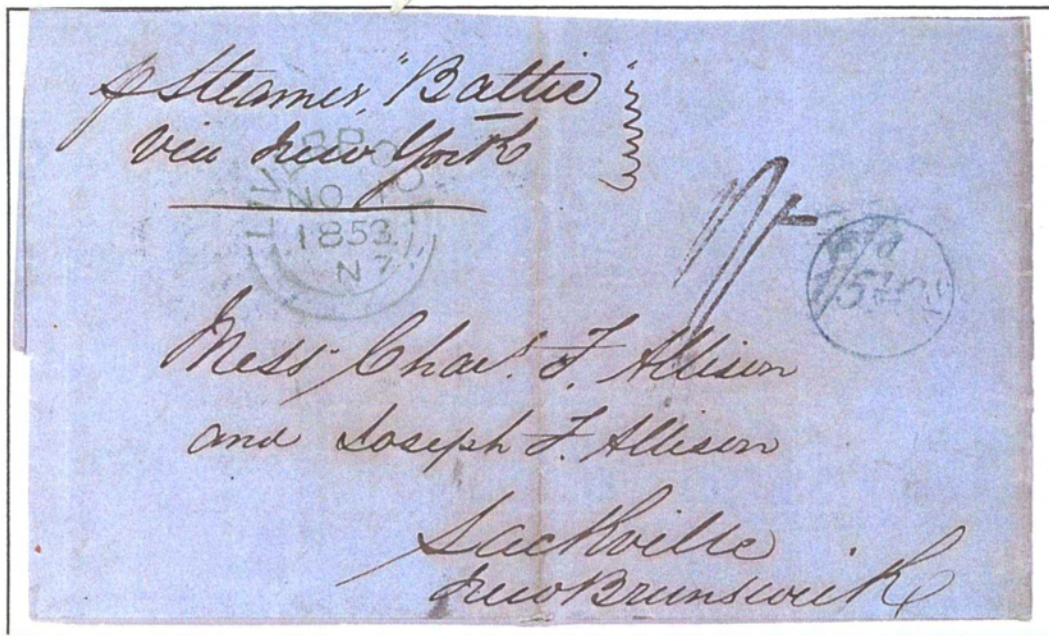 p Steamer, "Baltic"
via New York
LIVERPOOL
NO 10
1853
N Z
1/-
Mess Chas. F. Allison
and Joseph F. Allison
Sackville
New Brunswick